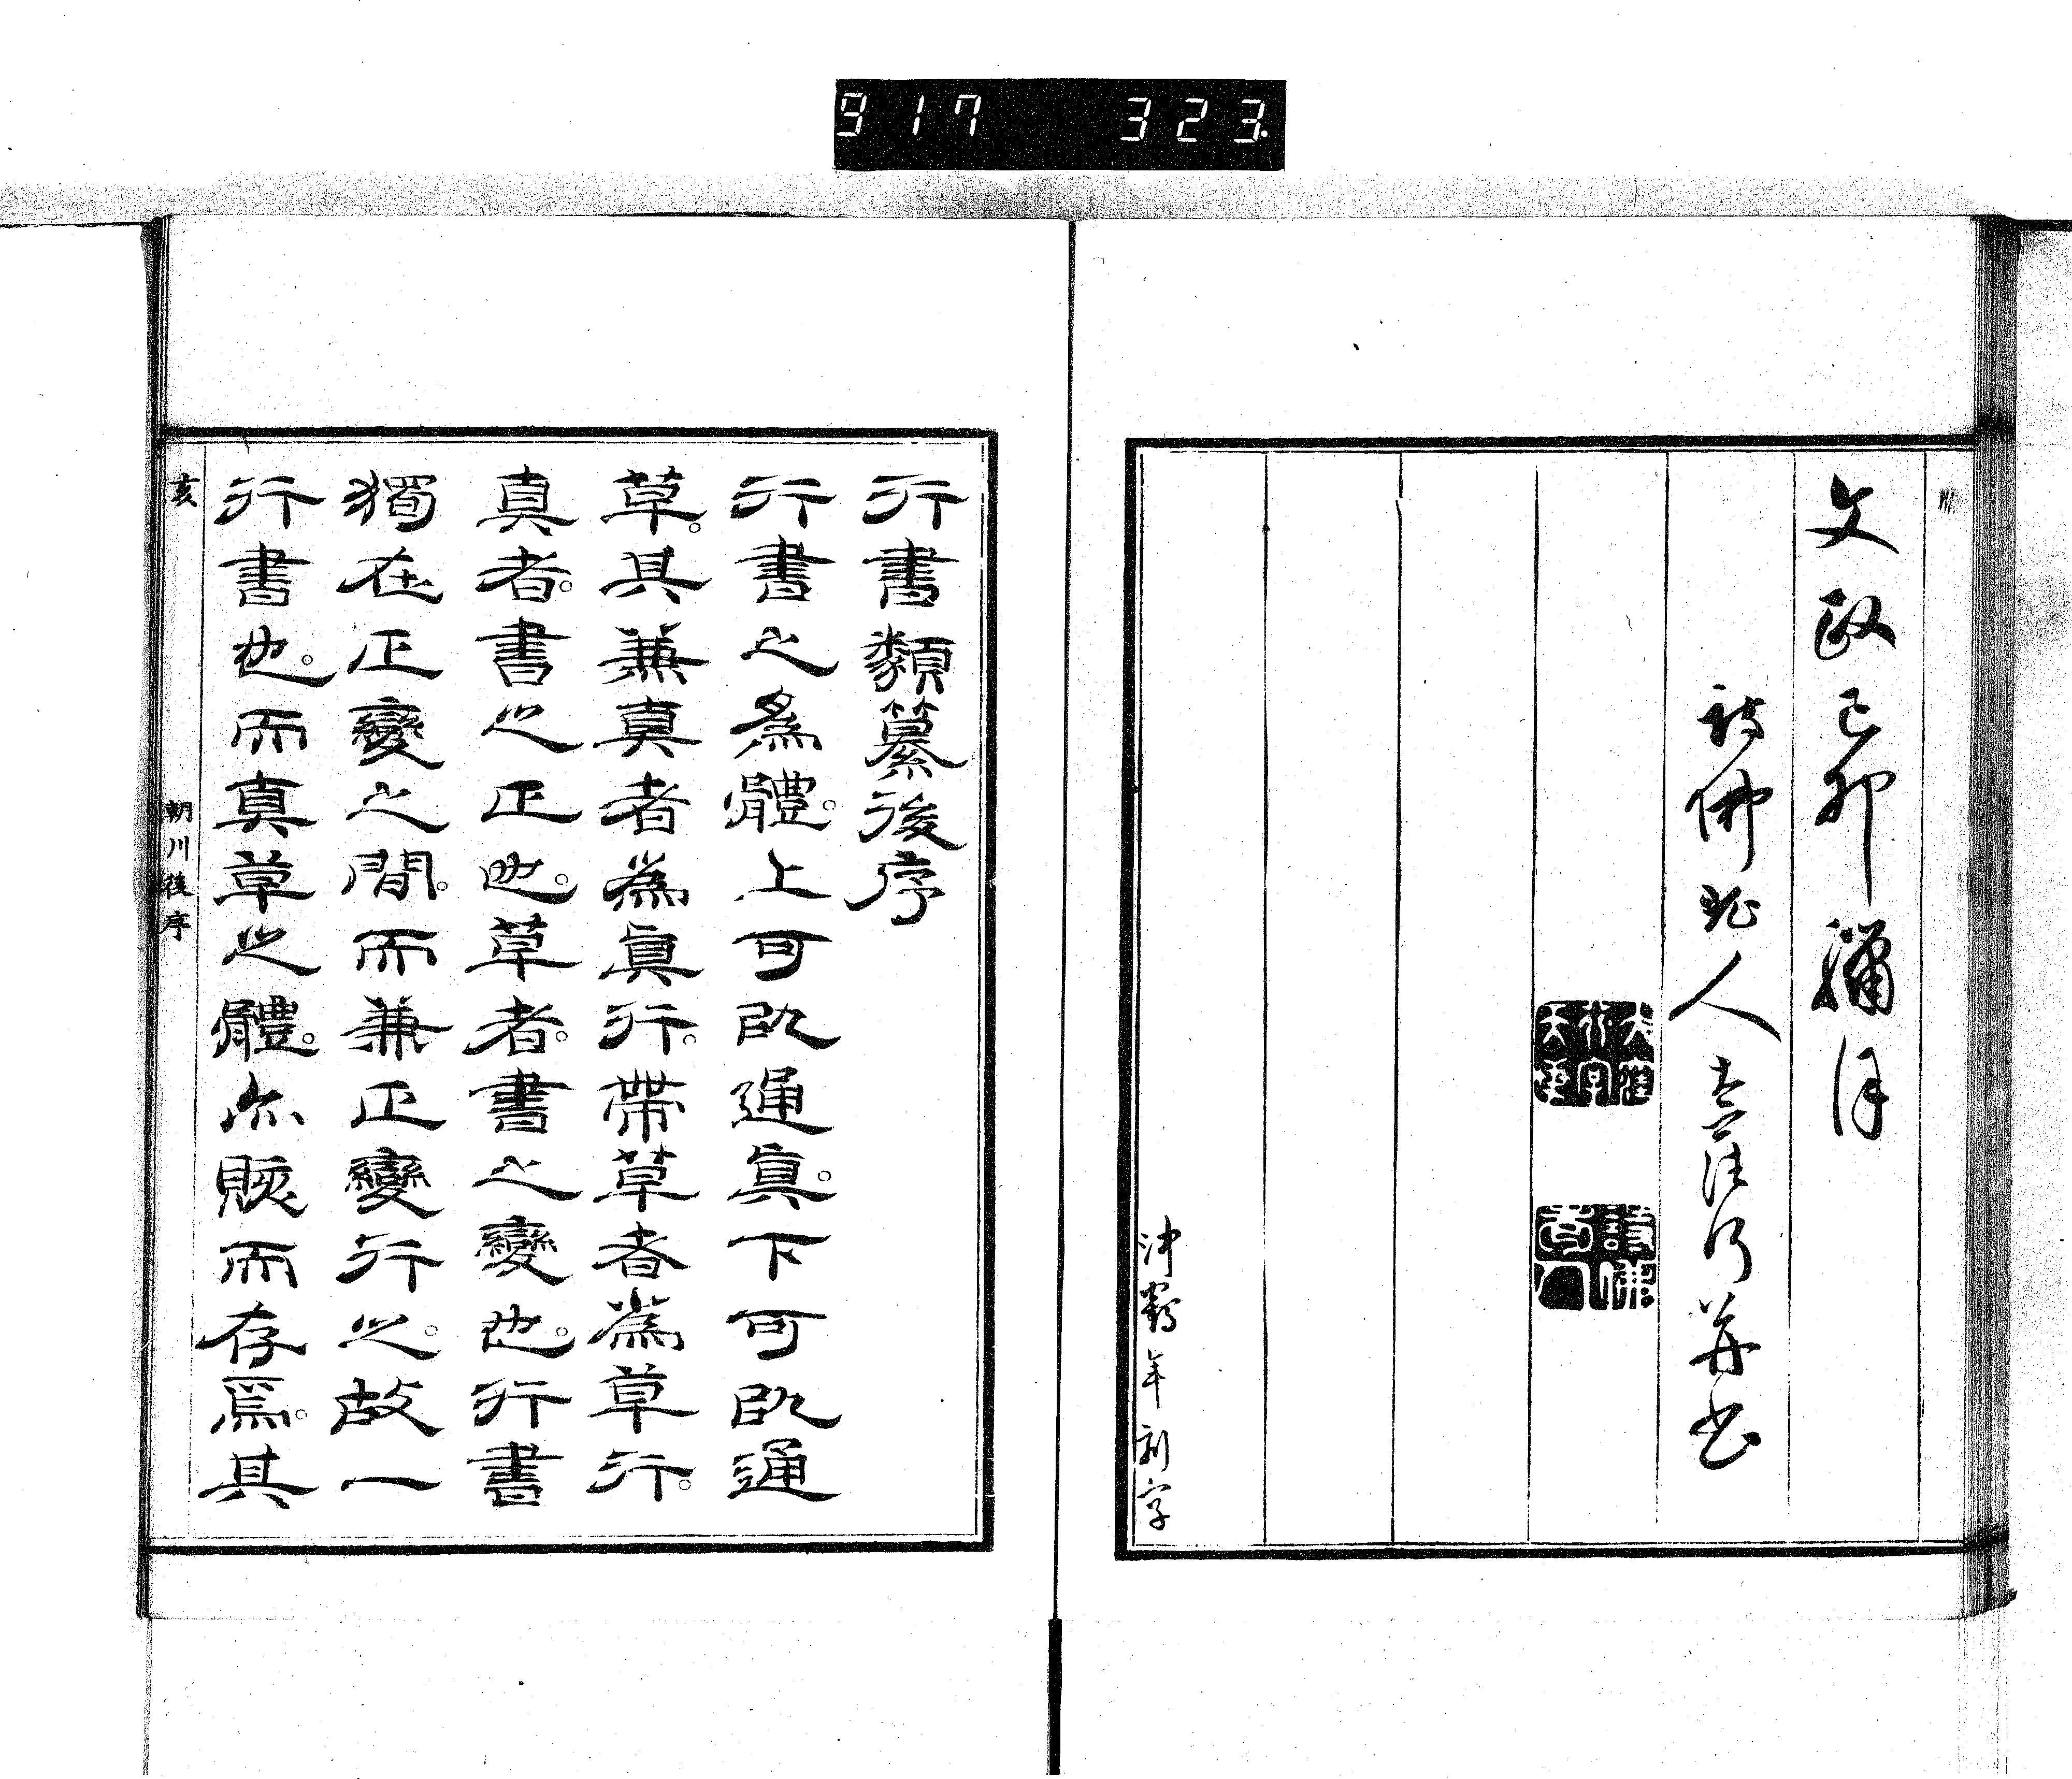 917 323.
文政己卯臘月
詩佛老人大窪行并書
沖鶴年刻字
行書類纂後序
行書之為體。上可以通真。下可以通
草。其兼真者為真行。帶草者為草行。
真者。書之正也。草者。書之變也。行書
獨在正變之間。而兼正變行之。故一
行書也。而真草之體。亦賅而存焉。其
亥
朝川後序